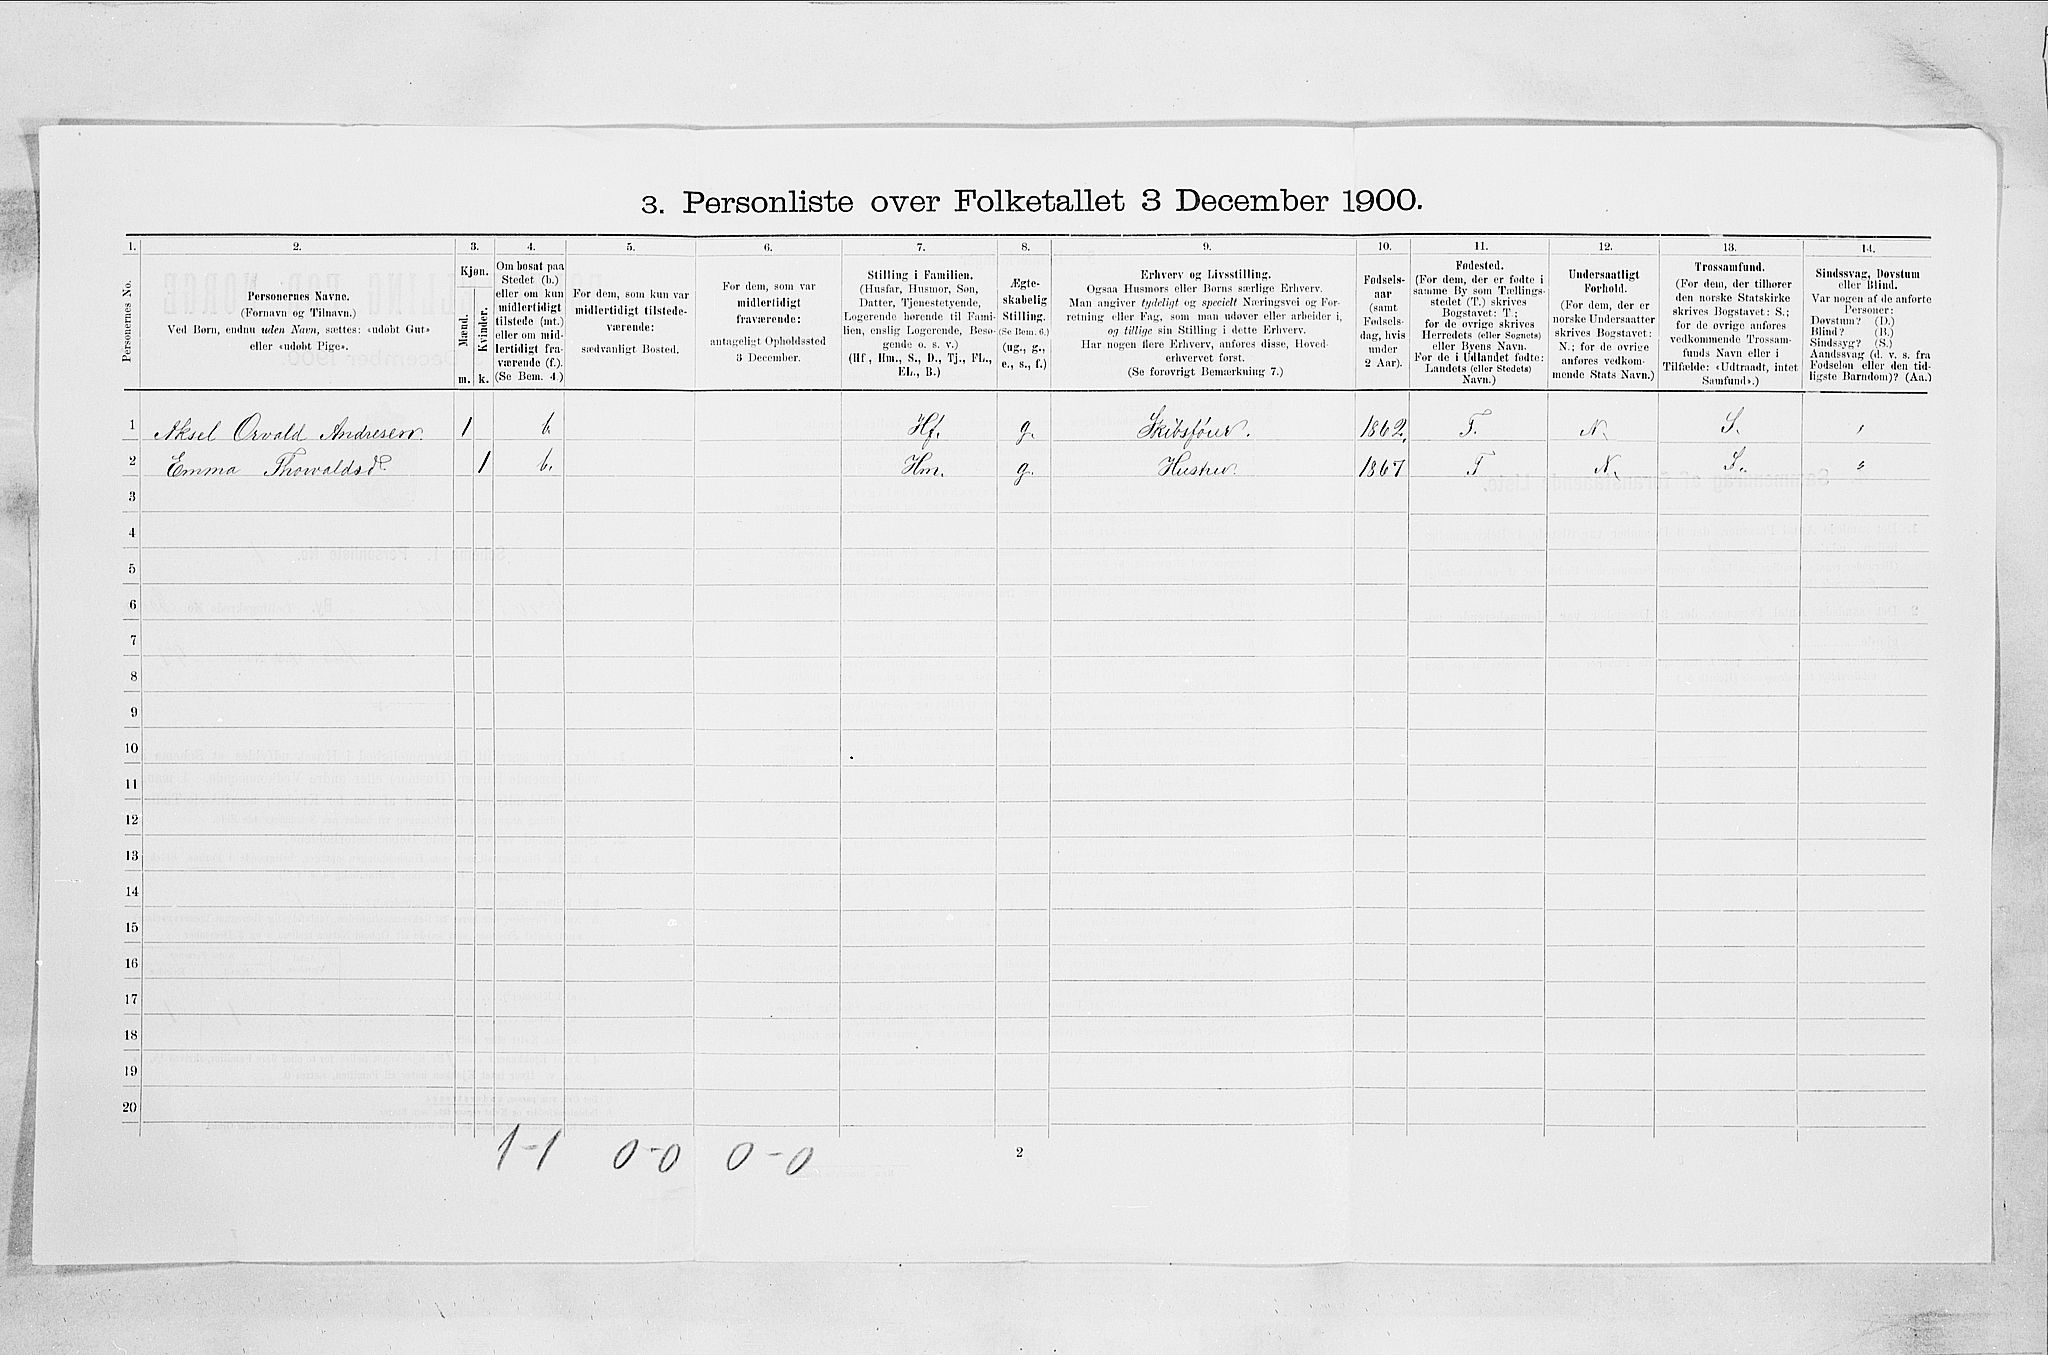 3. Personliste over Folketallet 3 December 1900.
1. 2. 3. 4. 5. 6. 7. 8. 9. 10. 11. 12. 13. 14.
Personernes No.
Personernes Navne.
(Fornavn og Tilnavn.)
Ved Børn, endnu uden Navn, sættes: «udøbt Gut»
eller «udøbt Pige».
Kjøn.
Mænd.
Kvinder.
m. k.
Om bosat paa
Stedet (b.)
eller om kun
midlertidigt
tilstede (mt.)
eller om mid-
lertidigt fra-
værende (f.).
(Se Bem. 4.)
For dem, som kun var
midlertidigt tilstede-
værende:
sædvanligt Bosted.
For dem, som var
midlertidigt
fraværende:
antageligt Opholdssted
3 December.
Stilling i Familien.
(Husfar, Husmor, Søn,
Datter, Tjenestetyende,
Logerende hørende til Fami-
lien, enslig Logerende, Besø-
gende o. s. v.)
(Hf, Hm., S., D., Tj., FL.,
EL., B.)
Ægte-
skabelig
Stilling.
(Se Bem. 6.)
(ug., g.,
e., s., f.)
Erhverv og Livsstilling.
Ogsaa Husmors eller Børns særlige Erhverv.
Man angiver tydeligt og specielt Næringsvei og For-
retning eller Fag, som man udøver eller arbeider i,
og tillige sin Stilling i dette Erhverv.
Har nogen flere Erhverv, anføres disse, Hoved-
erhvervet først.
(Se forøvrigt Bemærkning 7.)
Fødsels-
aar
(samt
Fødsels-
dag, hvis
under
2 Aar).
Fødested.
(For dem, der er fødte i
samme By som Tællings-
stedet (T.) skrives
Bogstavet: T.;
for de øvrige skrives
Herredets (eller Sognets)
eller Byens Navn.
For de i Udlandet fødte:
Landets (eller Stedets)
Navn.)
Undersaatligt
Forhold.
(For dem, der er
norske Undersaatter
skrives Bogstavet:
N.; for de øvrige
anføres vedkom-
mende Stats Navn.)
Trossamfund.
(For dem, der tilhører
den norske Statskirke
skrives Bogstavet: S.;
for de øvrige anføres
vedkommende Trossam-
funds Navn eller i
Tilfælde: «Udtraadt, intet
Samfund».)
Sindssvag, Døvstum
eller Blind.
Var nogen af de anførte
Personer:
Døvstum? (D.)
Blind? (B.)
Sindssyg? (S.)
Aandssvag (d. v. s. fra
Fødselen eller den tid-
ligste Barndom)? (Aa.)
1 Aksel Orvald Andresen. 1 b. Hf. g. Skibsfører. 1862. T. N. S.
2 Emma Thowaldsd. 1 b. Hm. g. Hustru. 1867 T N. S.
3
4
5
6
7
8
9
10
11
12
13
14
15
16
17
18
19
20
1-1 0-0 0-0
2